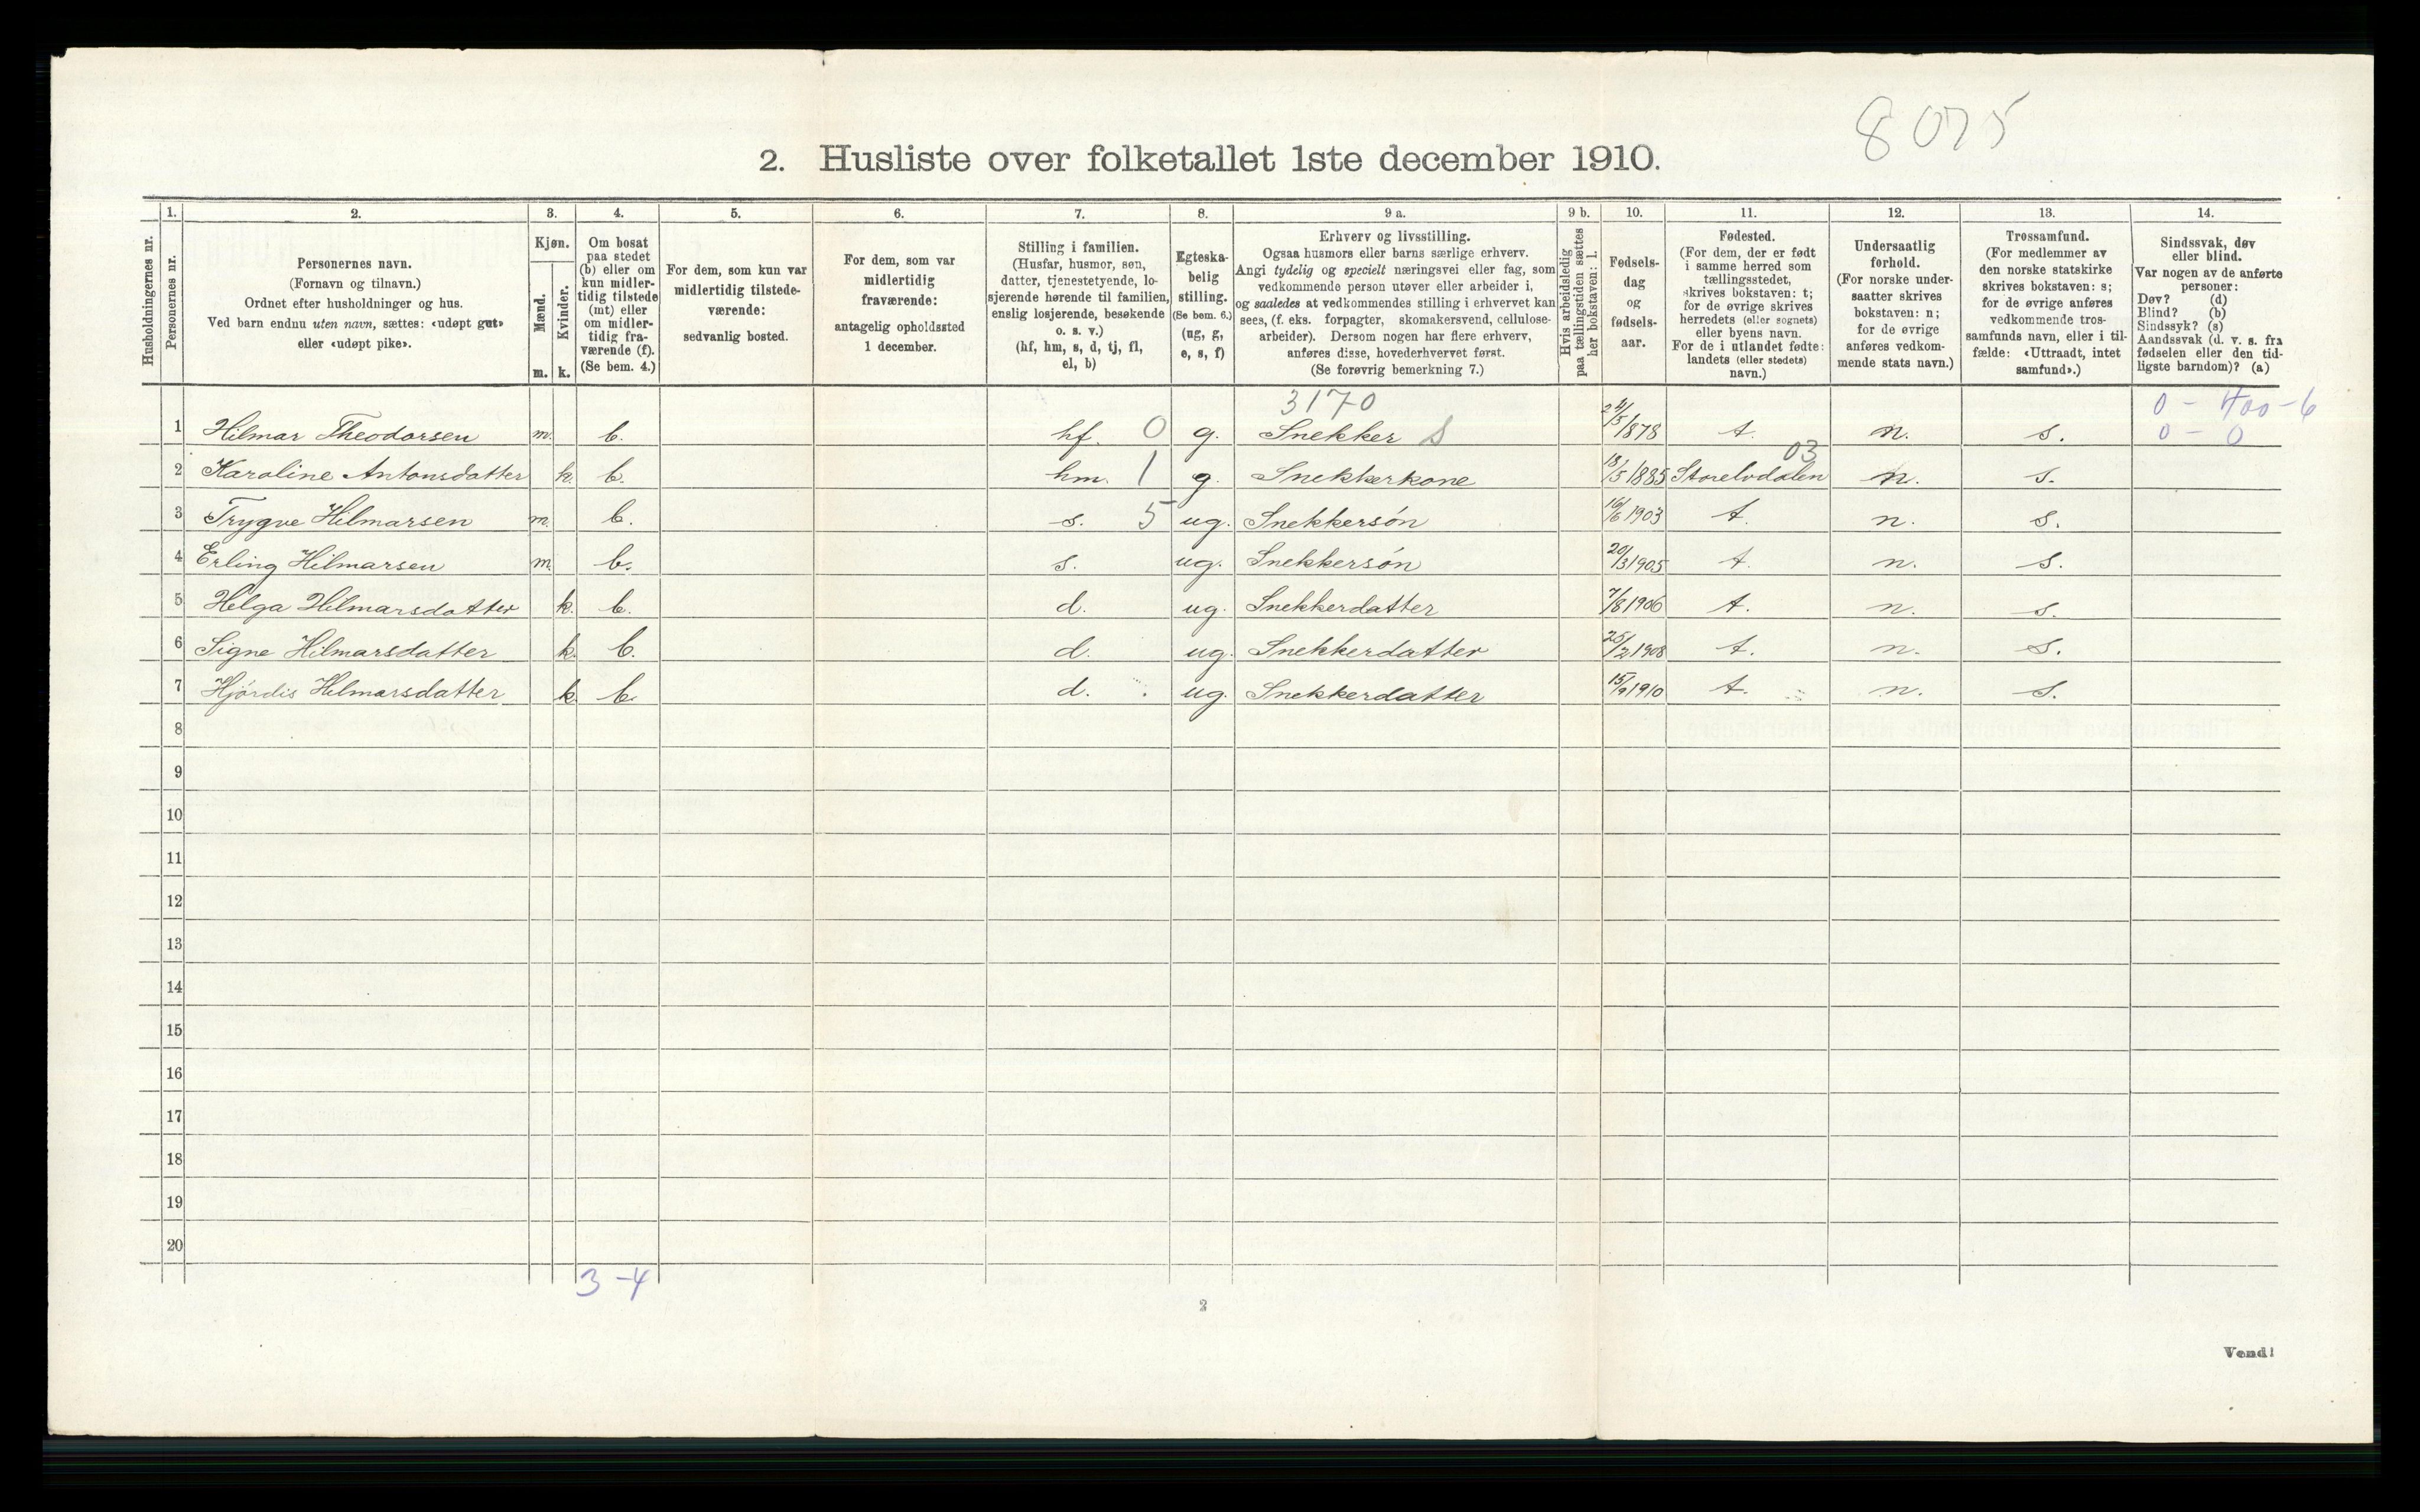 8075
2. Husliste over folketallet 1ste december 1910.
Husholdningernes nr.
1. Personernes nr.
2. Personernes navn. (Fornavn og tilnavn.) Ordnet efter husholdninger og hus. Ved barn endnu uten navn, sættes: «udøpt gut» eller «udøpt pike».
3. Kjøn. Mænd. m. Kvinder. k.
4. Om bosat paa stedet (b) eller om kun midlertidig tilstede (mt) eller om midlertidig fraværende (f). (Se bem. 4.)
5. For dem, som kun var midlertidig tilstedeværende: sedvanlig bosted.
6. For dem, som var midlertidig fraværende: antagelig opholdssted 1 december.
7. Stilling i familien. (Husfar, husmor, søn, datter, tjenestetyende, losjerende hørende til familien, enslig losjerende, besøkende o. s. v.) (hf, hm, s, d, tj, fl, el, b)
8. Egteskabelig stilling. (Se bem. 6.) (ug, g, e, s, f)
9 a. Erhverv og livsstilling. Ogsaa husmors eller barns særlige erhverv. Angi tydelig og specielt næringsvei eller fag, som vedkommende person utøver eller arbeider i, og saaledes at vedkommendes stilling i erhvervet kan sees, (f. eks. forpagter, skomakersvend, cellulosearbeider). Dersom nogen har flere erhverv, anføres disse, hovederhvervet først. (Se forøvrig bemerkning 7.)
9 b. Hvis arbeidsledig paa tællingstiden sættes her bokstaven: l.
10. Fødselsdag og fødselsaar.
11. Fødested. (For dem, der er født i samme herred som tællingsstedet, skrives bokstaven: t; for de øvrige skrives herredets (eller sognets) eller byens navn. For de i utlandet fødte: landets (eller stedets) navn.)
12. Undersaatlig forhold. (For norske undersaatter skrives bokstaven: n; for de øvrige anføres vedkommende stats navn.)
13. Trossamfund. (For medlemmer av den norske statskirke skrives bokstaven: s; for de øvrige anføres vedkommende trossamfunds navn, eller i tilfælde: «Uttraadt, intet samfund».)
14. Sindssvak, døv eller blind. Var nogen av de anførte personer: Døv? (d) Blind? (b) Sindssyk? (s) Aandssvak (d. v. s. fra fødselen eller den tidligste barndom)? (a)
3170 0 - 400-6
1 Hilmar Theodorsen m. b. hf. 0 g. Snekker S 24/5 1878 t. n. s. 0 - 0
03
2 Karoline Antonsdatter k. b. hm. 1 g. Snekkerkone 18/5 1885 Storelvdalen n. s.
3 Trygve Hilmarsen m. b. s. 5 ug. Snekkersøn 16/6 1903 t. n. s.
4 Erling Hilmarsen m. b. s. ug. Snekkersøn 20/3 1905 t. n. s.
5 Helga Hilmarsdatter k. b. d. ug. Snekkerdatter 7/8 1906 t. n. s.
6 Signe Hilmarsdatter k. b. d. ug. Snekkerdatter 25/2 1908 t. n. s.
7 Hjørdis Hilmarsdatter k. b. d. ug. Snekkerdatter 15/9 1910 t. n. s.
8
9
10
11
12
13
14
15
16
17
18
19
20
3-4
2
Vend!